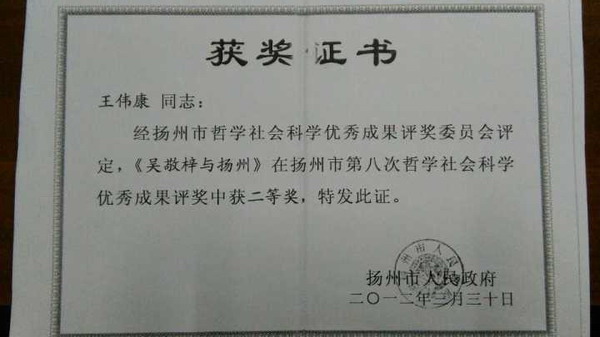 获奖证书
王伟康 同志：
经扬州市哲学社会科学优秀成果评奖委员会评
定，《吴敬梓与扬州》在扬州市第八次哲学社会科学
优秀成果评奖中获二等奖，特发此证。
扬州市人民政府
二〇一二年三月三十日